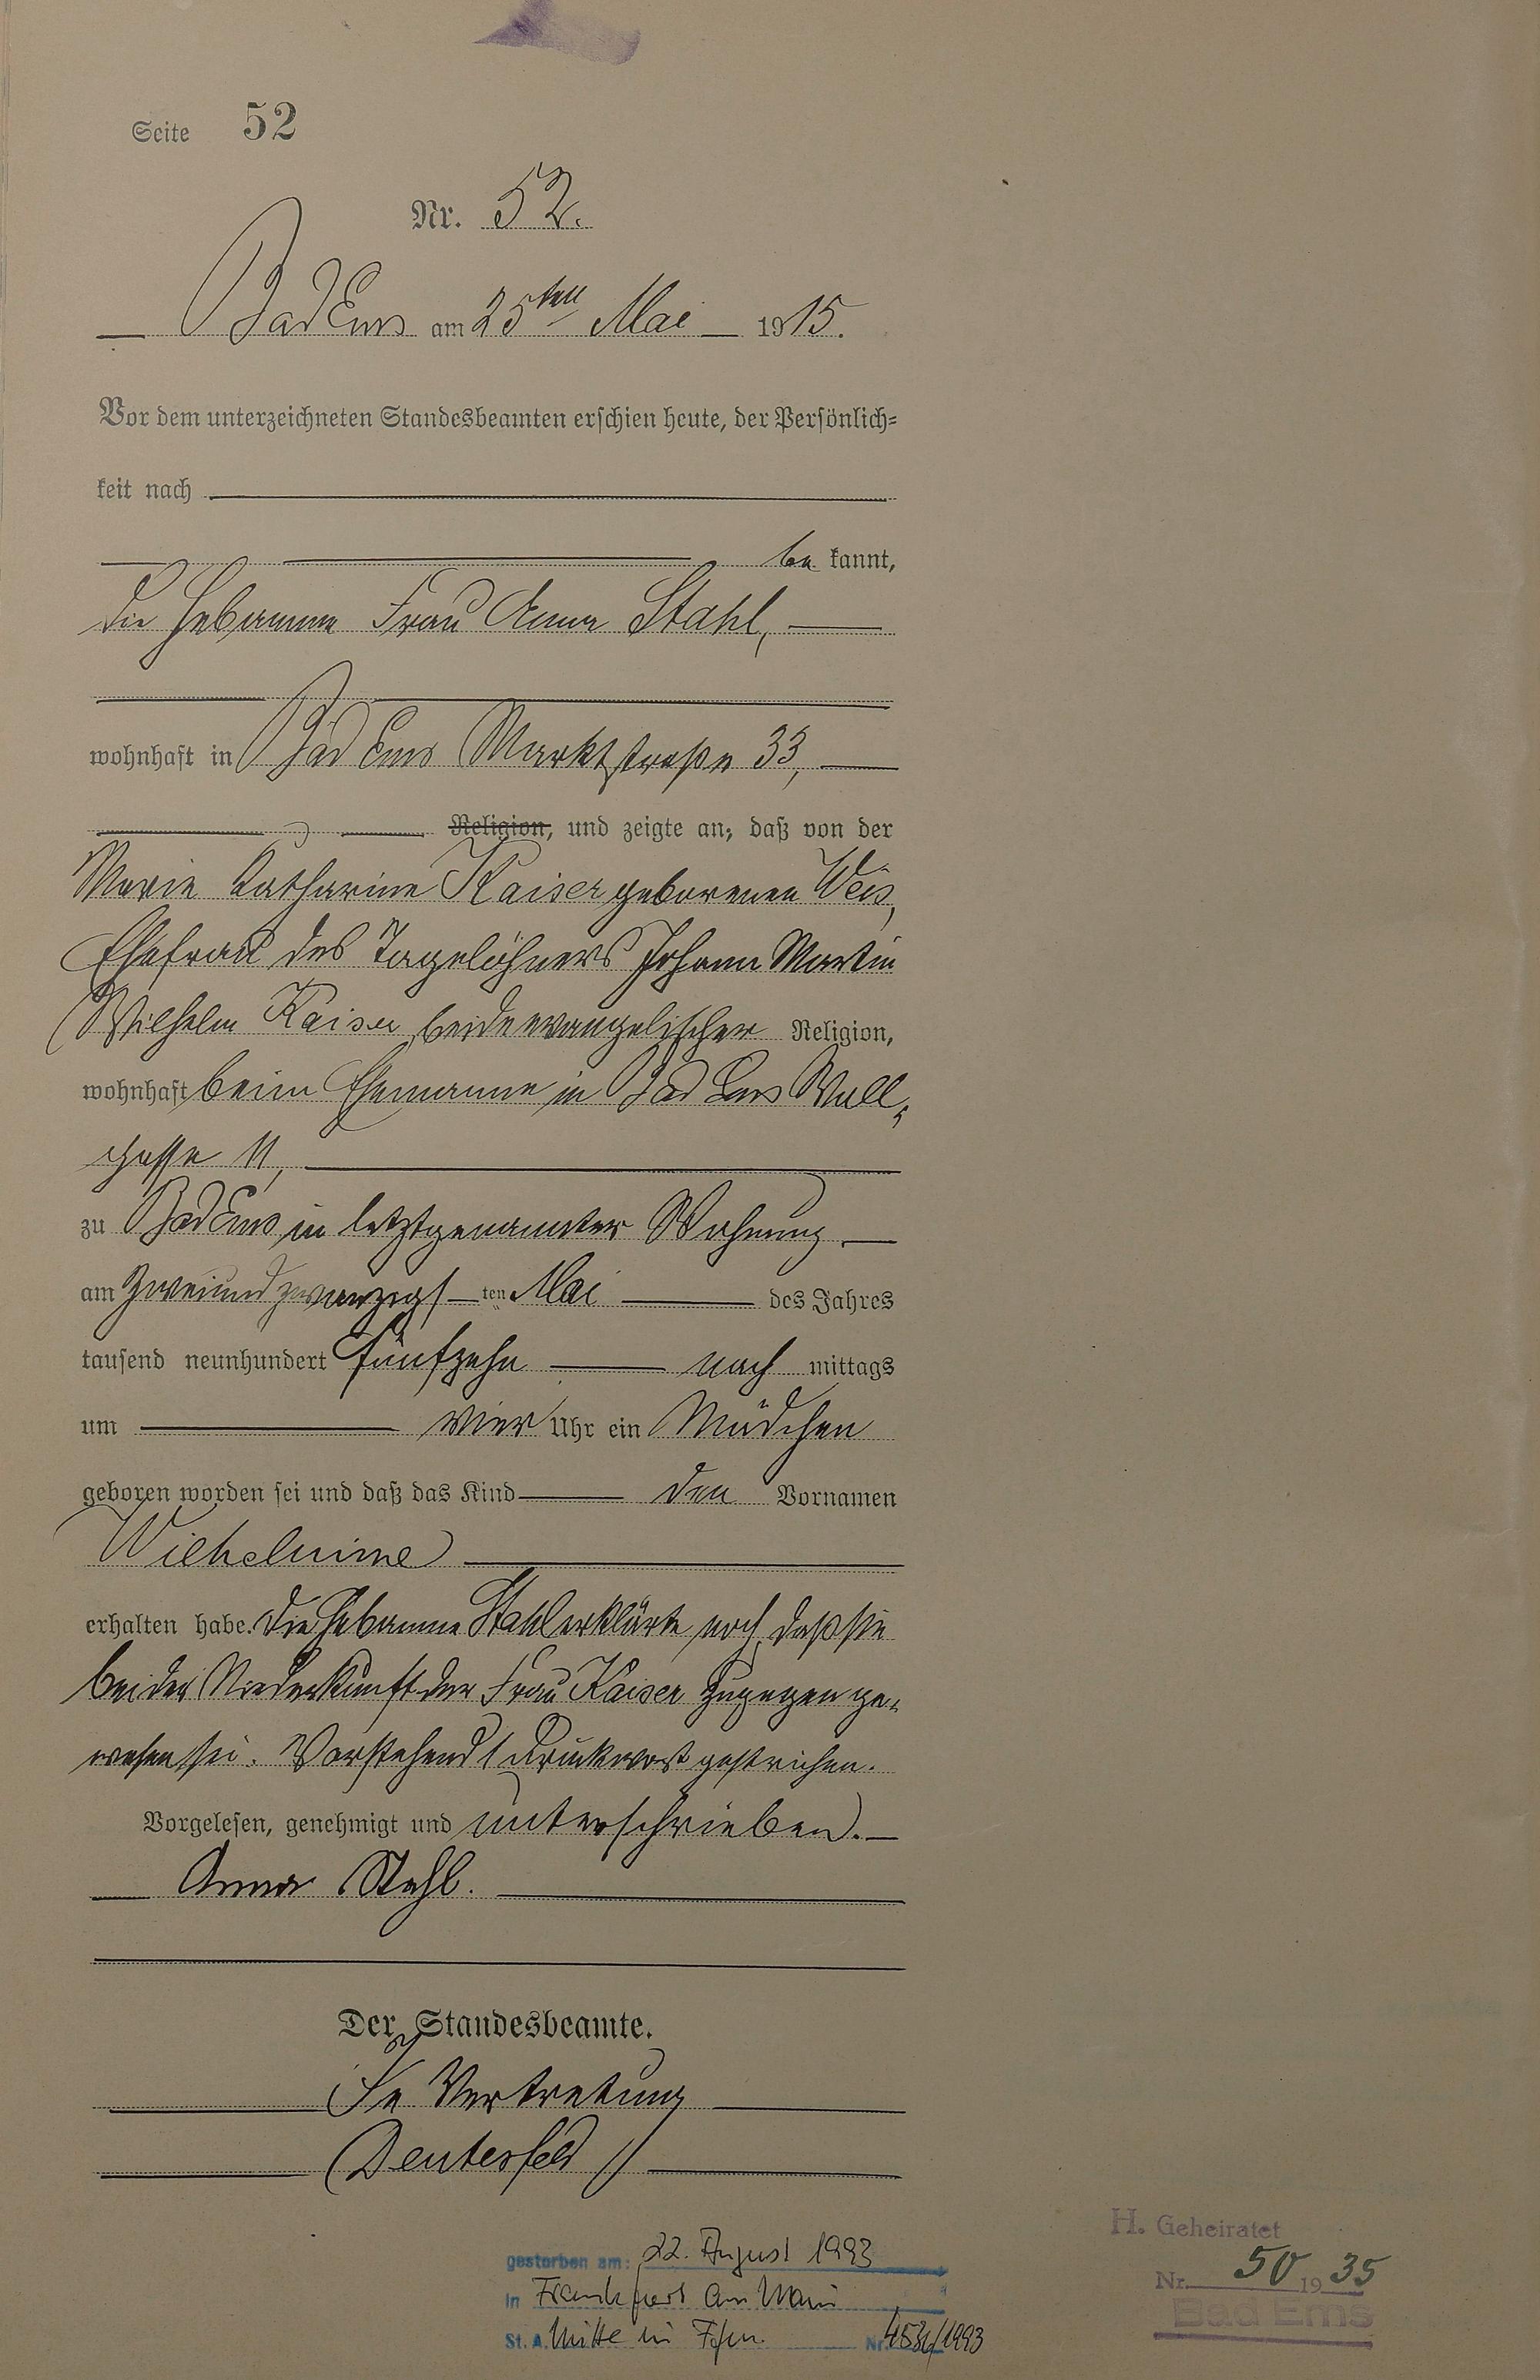 Seite 52
Nr. 52.
Bad Ems am 25ten Mai 1915.
Vor dem unterzeichneten Standesbeamten erschien heute, der Persönlich=
keit nach
be kannt,
die Hebamme Frau Anna Stahl,
wohnhaft in Bad Ems Marktstraße 33,
Religion, und zeigte an, daß von der
Marie Katharine Kaiser geborenen Weis,
Ehefrau des Tagelöhners Johann Martin
Wilhelm Kaiser, beide evangelischer Religion,
wohnhaft beim Ehemanne in Bad Ems Wall=
gasse 11,
zu Bad Ems in letztgenannter Wohnung,
am zweiundzwanzigs ten Mai des Jahres
tausend neunhundert fünfzehn nach mittags
um vier Uhr ein Mädchen
geboren worden sei und daß das Kind den Vornamen
Wilhelmine
erhalten habe. Die Hebamme Stahl erklärte noch, daß sie
bei der Niederkunft der Frau Kaiser zugegen ge=
wesen sei. Vorstehend 1 Druckwort gestrichen.
Vorgelesen, genehmigt und unterschrieben.
Anna Stahl.
Der Standesbeamte.
In Vertretung
gestorben am: 22. August 1993
in Frankfurt am Main
St. A. Mitte in Ffm. Nr. /1993
H. Geheiratet
Nr. 50 1935
Bad Ems